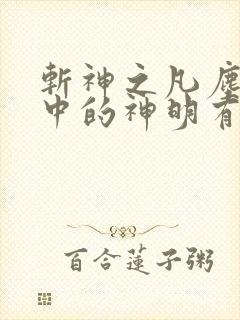 斬神之凡塵
中的神明有
百合蓮子粥